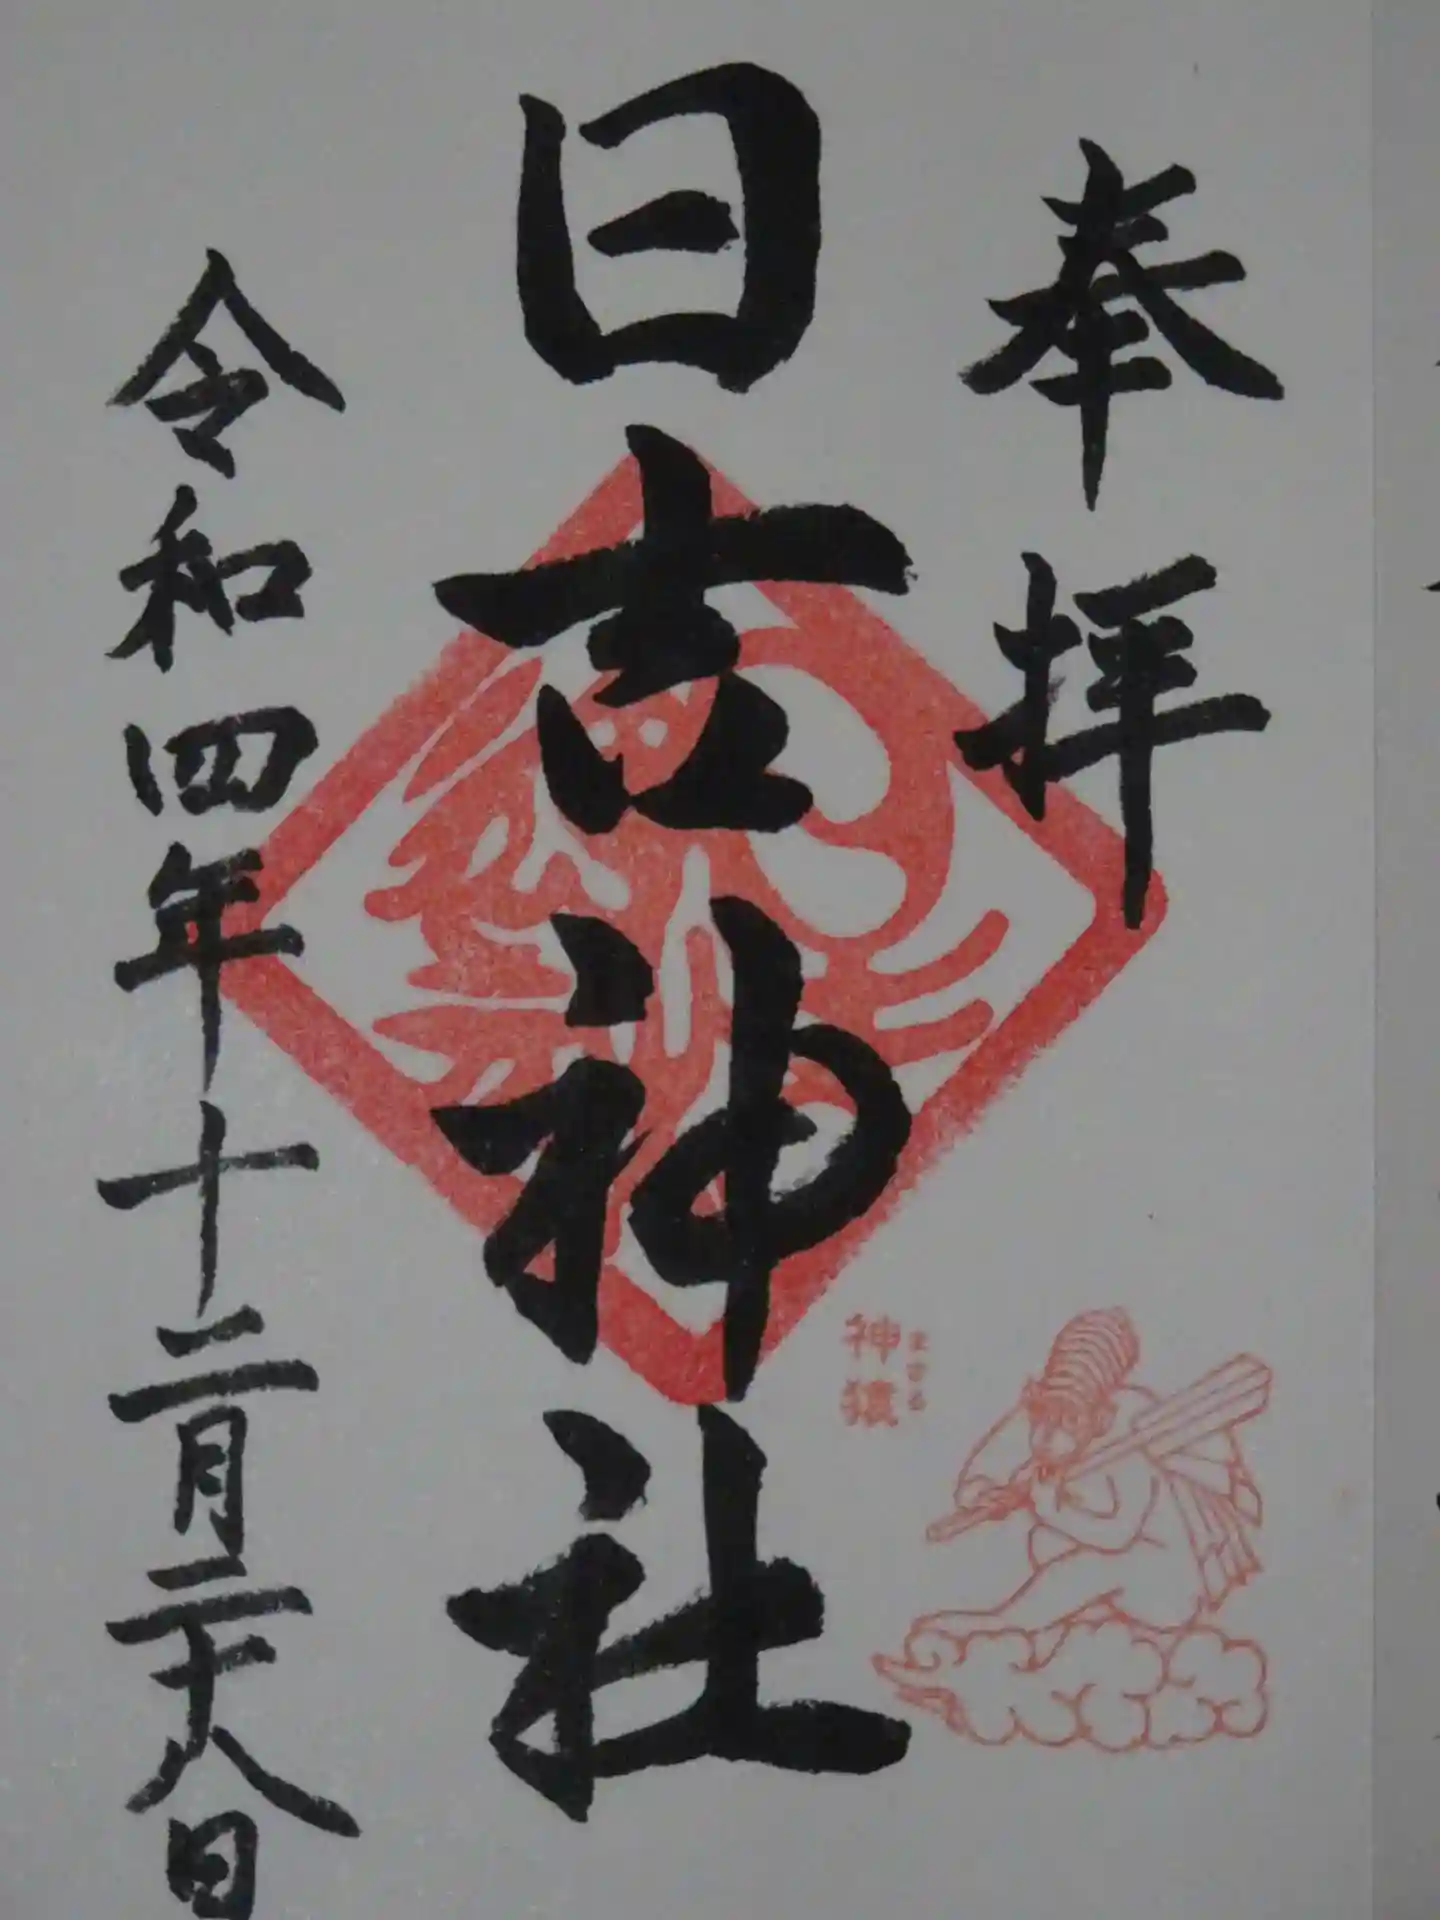 奉拝
日吉神社
神猿
まさる
令和四年十二月二十八日